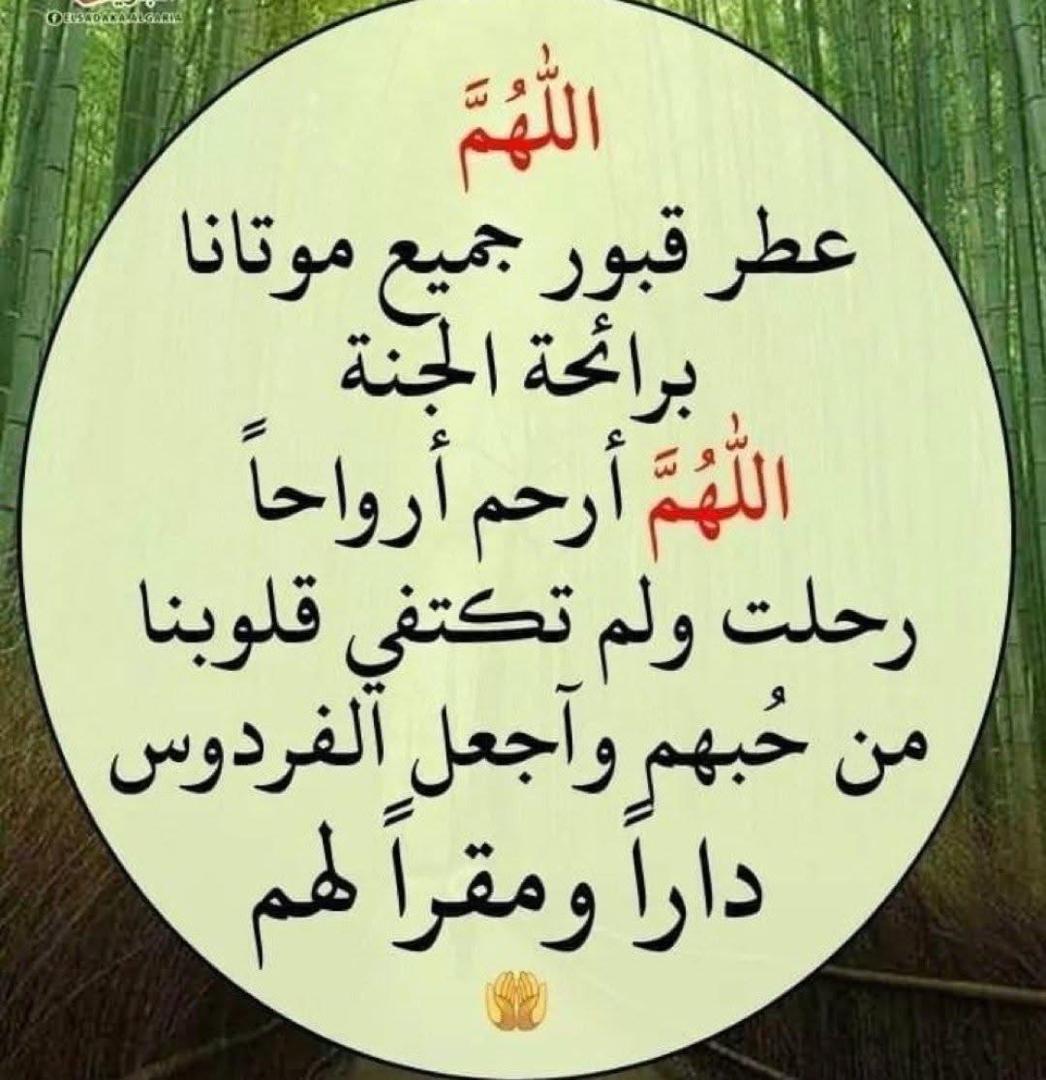 ELSADAKA.ALGARIA
اللّٰهُمَّ
عطر قبور جميع موتانا
برائحة الجنة
اللّٰهُمَّ أرحم أرواحاً
رحلت ولم تكتفي قلوبنا
من حُبهم وآجعل الفردوس
داراً ومقراً لهم